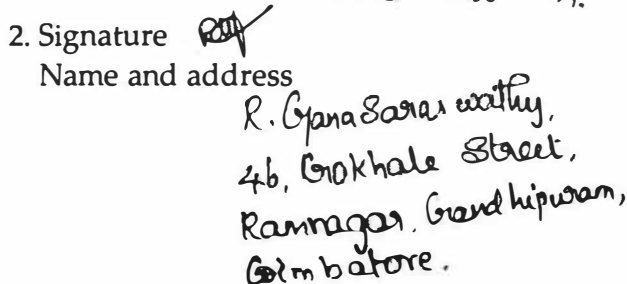 2. Signature
Name and address
R. Gyana Saraswathy,
46, Gokhale Street,
Ramnagar, Gandhipuram,
Coimbatore.